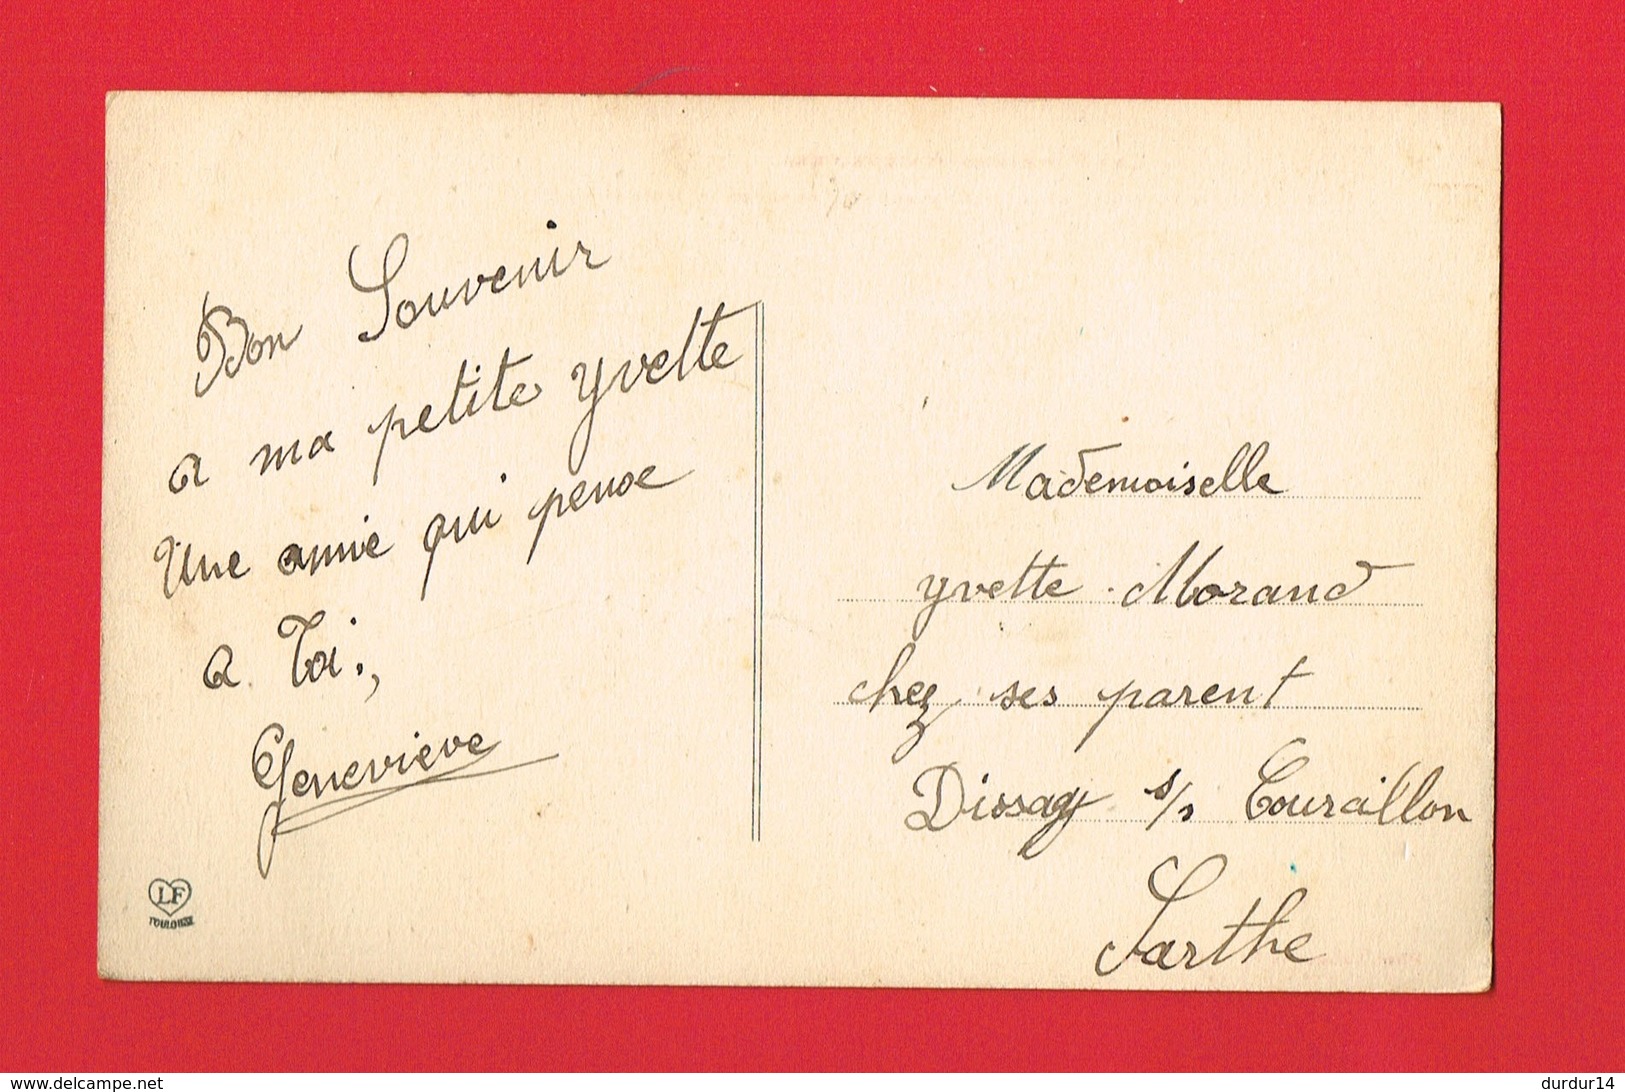 Bon Souvenir
a ma petite yvette
Une amie qui pense
a Toi.,
Geneviève
LF
TOULOUSE
Mademoiselle
yvette Morand
chez ses parent
Dissay s/s Couraillon
Sarthe
www.delcampe.net
durdur14